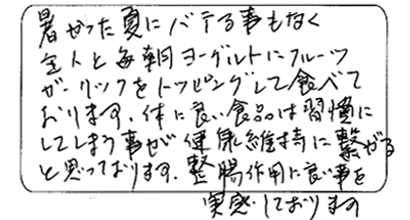 暑かった夏にバテる事もなく
主人と毎朝ヨーグルトにフルーツ
ガーリックをトッピングして食べて
おります。体に良い食品は習慣に
してしまう事が健康維持に繋がる
と思っております。整腸作用に良い事を
実感しております